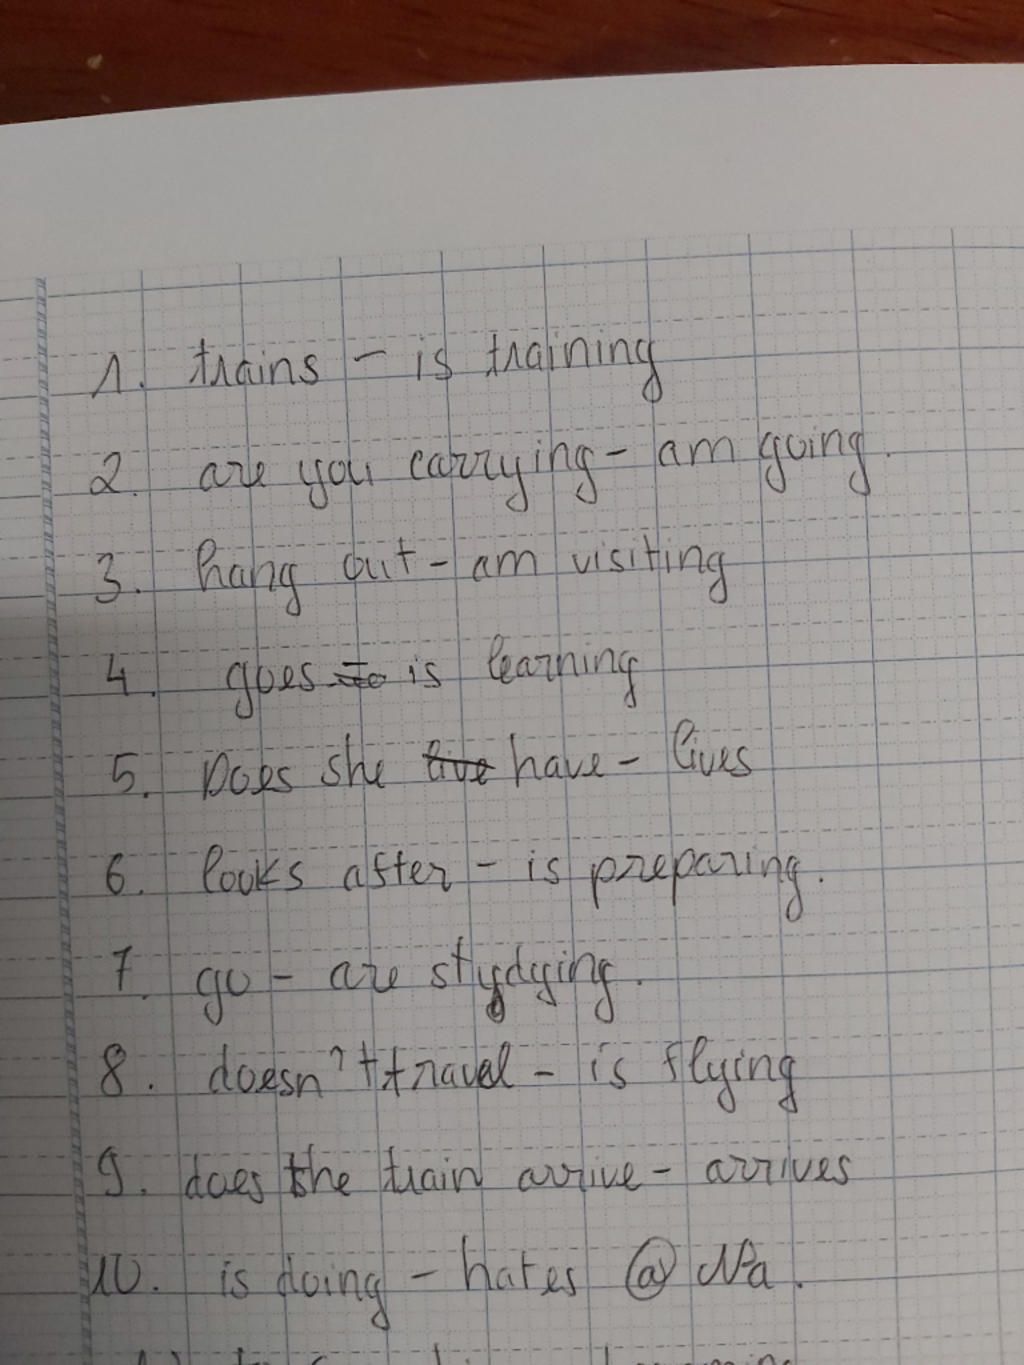 1. trains - is training
2. are you carrying - am going.
3. hang out - am visiting
4. goes is learning
5. Does she live have - lives
6. looks after - is preparing.
7. go - are stydying.
8. doesn't travel - is flying
9. does the train arrive - arrives
10. is doing - hates @